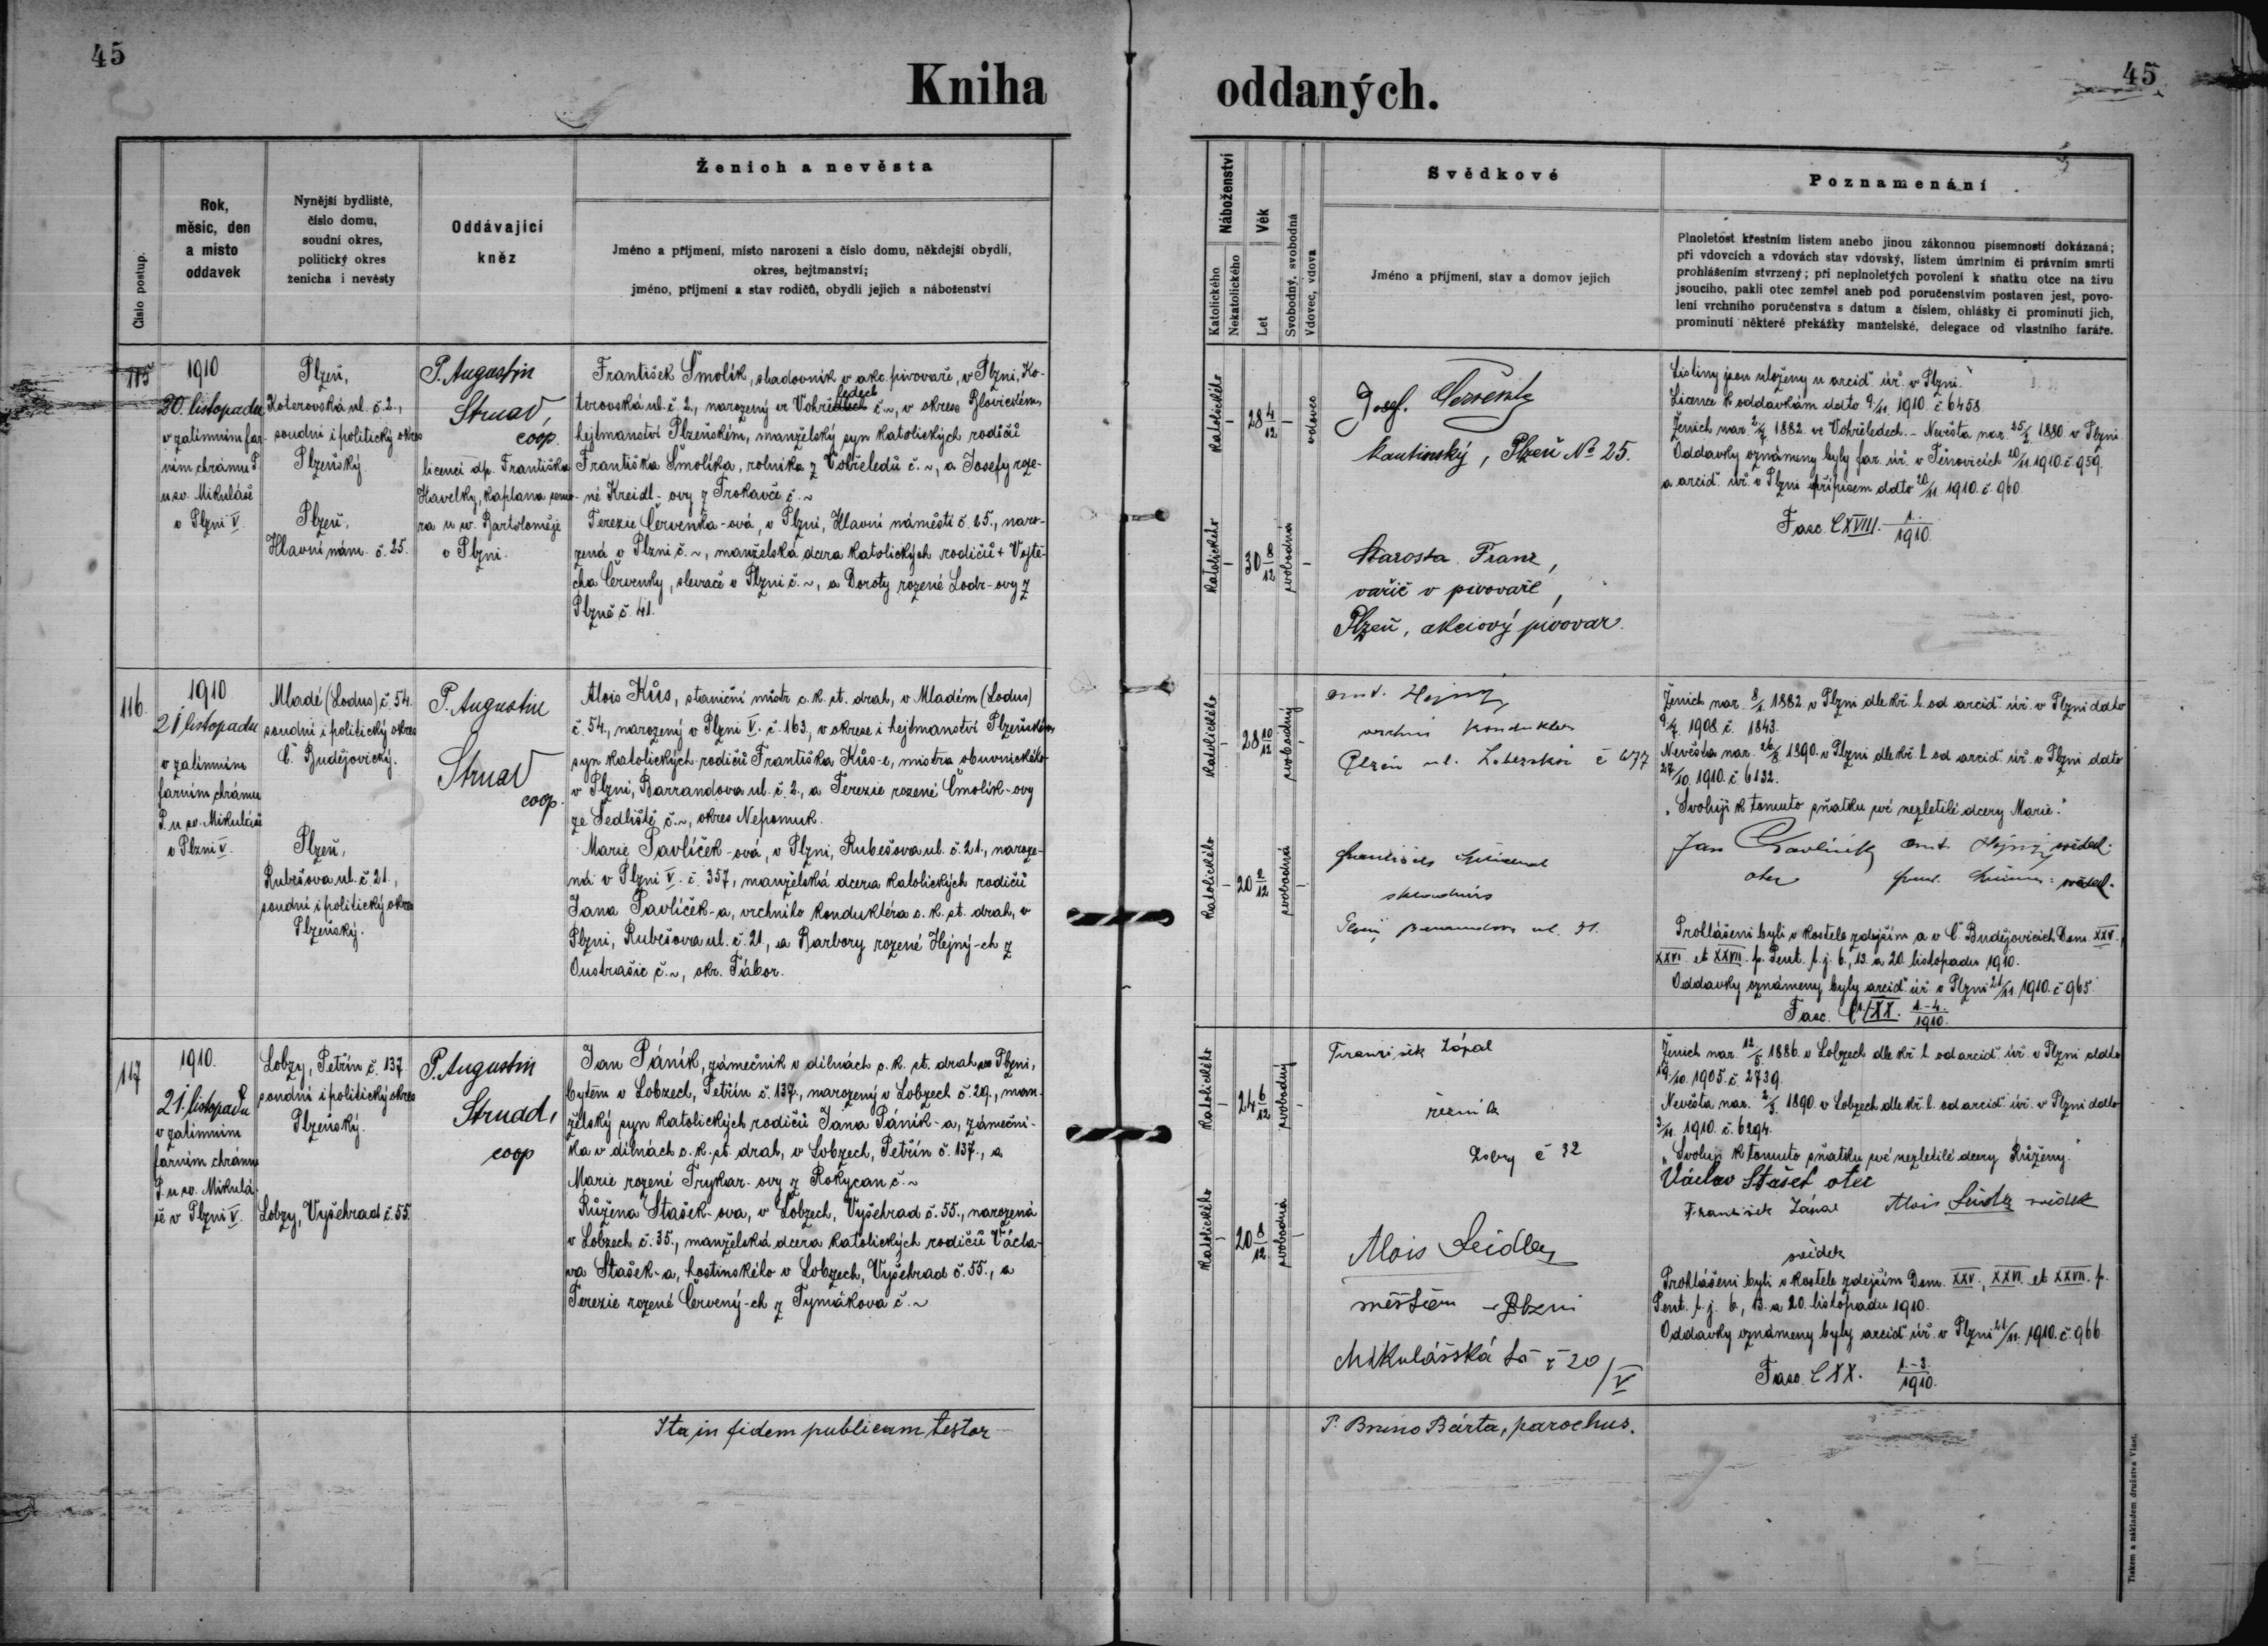 45
Kniha
Číslo postup.
Rok,
měsíc, den
a místo
oddavek
Nynější bydliště,
číslo domu,
soudní okres,
politický okres
ženicha i nevěsty
Oddávající
kněz
Ženich a nevěsta
Jméno a příjmení, místo narození a číslo domu, někdejší obydlí,
okres, hejtmanství;
jméno, příjmení a stav rodičů, obydlí jejich a náboženství
115
1910
20. listopadu
v zatímním far-
ním chrámu P.
u sv. Mikuláše
v Plzni V.
Plzeň,
Koterovská ul. č. 2.,
soudní i politický okres
Plzeňský.
Plzeň,
Hlavní nám. č. 25.
P. Augustin
Strnad,
coop.
licencí dp. Františka
Havelky, kaplana senio-
ra u sv. Bartoloměje
v Plzni.
František Smolík, sladovník v akc. pivovaře, v Plzni, Ko-
ledech
terovská ul. č. 2., narozený ve Vohřed̶l̶e̶c̶h̶ č. ~, v okrese Blovickém,
hejtmanství Plzeňském, manželský syn katolických rodičů
Františka Smolíka, rolníka z Vohřeledů č. ~, a Josefy roze-
né Kreidl-ovy z Trokavče č. ~
Terezie Červenka-ová, v Plzni, Hlavní náměstí č. 25., naro-
zená v Plzni č. ~, manželská dcera katolických rodičů + Vojtě-
cha Červenky, slevače v Plzni č. ~, a Doroty rozené Lodr-ovy z
Plzně č. 41.
116.
1910
21. listopadu
v zatímním
farním chrámu
P. u sv. Mikuláše
v Plzni V.
Mladé (Lodus) č. 54.
soudní i politický okres
Č. Budějovický.
Plzeň,
Rubešova ul. č. 21.,
soudní i politický okres
Plzeňský.
P. Augustin
Strnad
coop.
Alois Kůs, staniční mistr c. k. st. drah, v Mladém (Lodus)
č. 54., narozený v Plzni V. č. 163, v okrese i hejtmanství Plzeňském,
syn katolických rodičů Františka Kůs-e, mistra obuvnického
v Plzni, Barrandova ul. č. 2., a Terezie rozené Smolík-ovy
ze Sedliště č. ~, okres Nepomuk.
Marie Pavlíček-ová, v Plzni, Rubešova ul. č. 21., naroze-
ná v Plzni V. č. 357, manželská dcera katolických rodičů
Jana Pavlíček-a, vrchního konduktéra c. k. st. drah, v
Plzni, Rubešova ul. č. 21, a Barbory rozené Hejný-ch z
Oustrašic č. ~, okr. Tábor.
117
1910.
21. listopadu
v zatímním
farním chrámu
P. u sv. Mikulá-
še v Plzni V.
Lobzy, Petřín č. 137.
soudní i politický okres
Plzeňský.
Lobzy, Vyšehrad č. 55.
P. Augustin
Strnad,
coop
Jan Páník, zámečník v dílnách c. k. st. drah v Plzni,
bytem v Lobzech, Petřín č. 137., narozený v Lobzech č. 29., man-
želský syn katolických rodičů Jana Páník-a, zámeční-
ka v dílnách c. k. st. drah, v Lobzech, Petřín č. 137., a
Marie rozené Trykar-ovy z Rokycan č. ~
Růžena Stašek-ova, v Lobzech, Vyšehrad č. 55., narozená
v Lobzech č. 35., manželská dcera katolických rodičů Václa-
va Stašek-a, hostinského v Lobzech, Vyšehrad č. 55., a
Terezie rozené Červený-ch z Tymákova č. ~
Ita in fidem publicam testor
oddaných.
45
Náboženství
Katolického
Nekatolického
Věk
Let
Svobodný, svobodná
Vdovec, vdova
Svědkové
Jméno a příjmení, stav a domov jejich
Poznamenání
Plnoletost křestním listem anebo jinou zákonnou písemností dokázaná;
při vdovcích a vdovách stav vdovský, listem úmrtním či právním smrti
prohlášením stvrzený; při neplnoletých povolení k sňatku otce na živu
jsoucího, pakli otec zemřel aneb pod poručenstvím postaven jest, povo-
lení vrchního poručenstva s datum a číslem, ohlášky či prominutí jich,
prominutí některé překážky manželské, delegace od vlastního faráře.
Katolického
28 4/12
vdovec
Katolického
30 8/12
svobodná
Josef
Plzeň No 25.
Starosta Franz,
vařič v pivovaře,
Plzeň, akciový pivovar.
Listiny jsou uloženy u arciď. úř. v Plzni.
Licence k oddavkám ddto 9/11. 1910. č. 6458.
Ženich nar. 2/7 1882. ve Vohřeledech. – Nevěsta nar. 25/2 1880. v Plzni.
Oddavky oznámeny byly far. úř. v Těnovicích 20/11. 1910. č. 959.
a arciď. úř. v Plzni přípisem ddto 20/11. 1910. č. 960
Fasc. CXVIII. 1./1910.
Katolického
28 10/12
svobodný
Katolického
20 2/12
svobodná
Ant. Hejný
vrchní konduktér
Plzeň ul.
ul. 31.
Ženich nar. 8/1 1882. v Plzni dle kř. l. od arciď. úř. v Plzni ddto
9/7 1908. č. 1843.
Nevěsta nar. 26/8 1890. v Plzni dle kř. l. od arciď. úř. v Plzni ddto
27/10. 1910. č. 6132.
„Svoluji k tomuto sňatku své nezletilé dcery Marie."
Jan Pavlíček Ant. Hejný svědek.
otec svědek.
Prohlášeni byli v kostele zdejším a v Č. Budějovicích Dom. XXV.,
XXVI. et XXVII. p. Pent. t. j. 6., 13. a 20. listopadu 1910.
Oddavky oznámeny byly arciď. úř. v Plzni 21/11. 1910. č. 965.
Fasc. CXIX. 1.-4./1910.
Katolického
24 6/12
svobodný
Katolického
20 8/12
svobodná
František Zápal
řezník
Lobzy č 32
Alois Seidler
měšťan v Plzni
Mikulášská tř. č 20/V
Ženich nar. 12/5 1886. v Lobzech dle kř. l. od arciď. úř. v Plzni ddto
19/10. 1905. č. 2739.
Nevěsta nar. 2/3 1890. v Lobzech dle kř. l. od arciď. úř. v Plzni ddto
3/11. 1910. č. 6294.
„Svoluji k tomuto sňatku své nezletilé dcery Růženy."
Václav Stašek otec
František Zápal Alois Seidler svědek
svědek
Prohlášeni byli v kostele zdejším Dom. XXV., XXVI. et XXVII. p.
Pent. t. j. 6., 13. a 20. listopadu 1910.
Oddavky oznámeny byly arciď. úř. v Plzni 21/11. 1910. č. 966
Fasc. CXX. 1.-3./1910.
P. Bruno Bárta, parochus.
Tiskem a nákladem družstva Vlast.